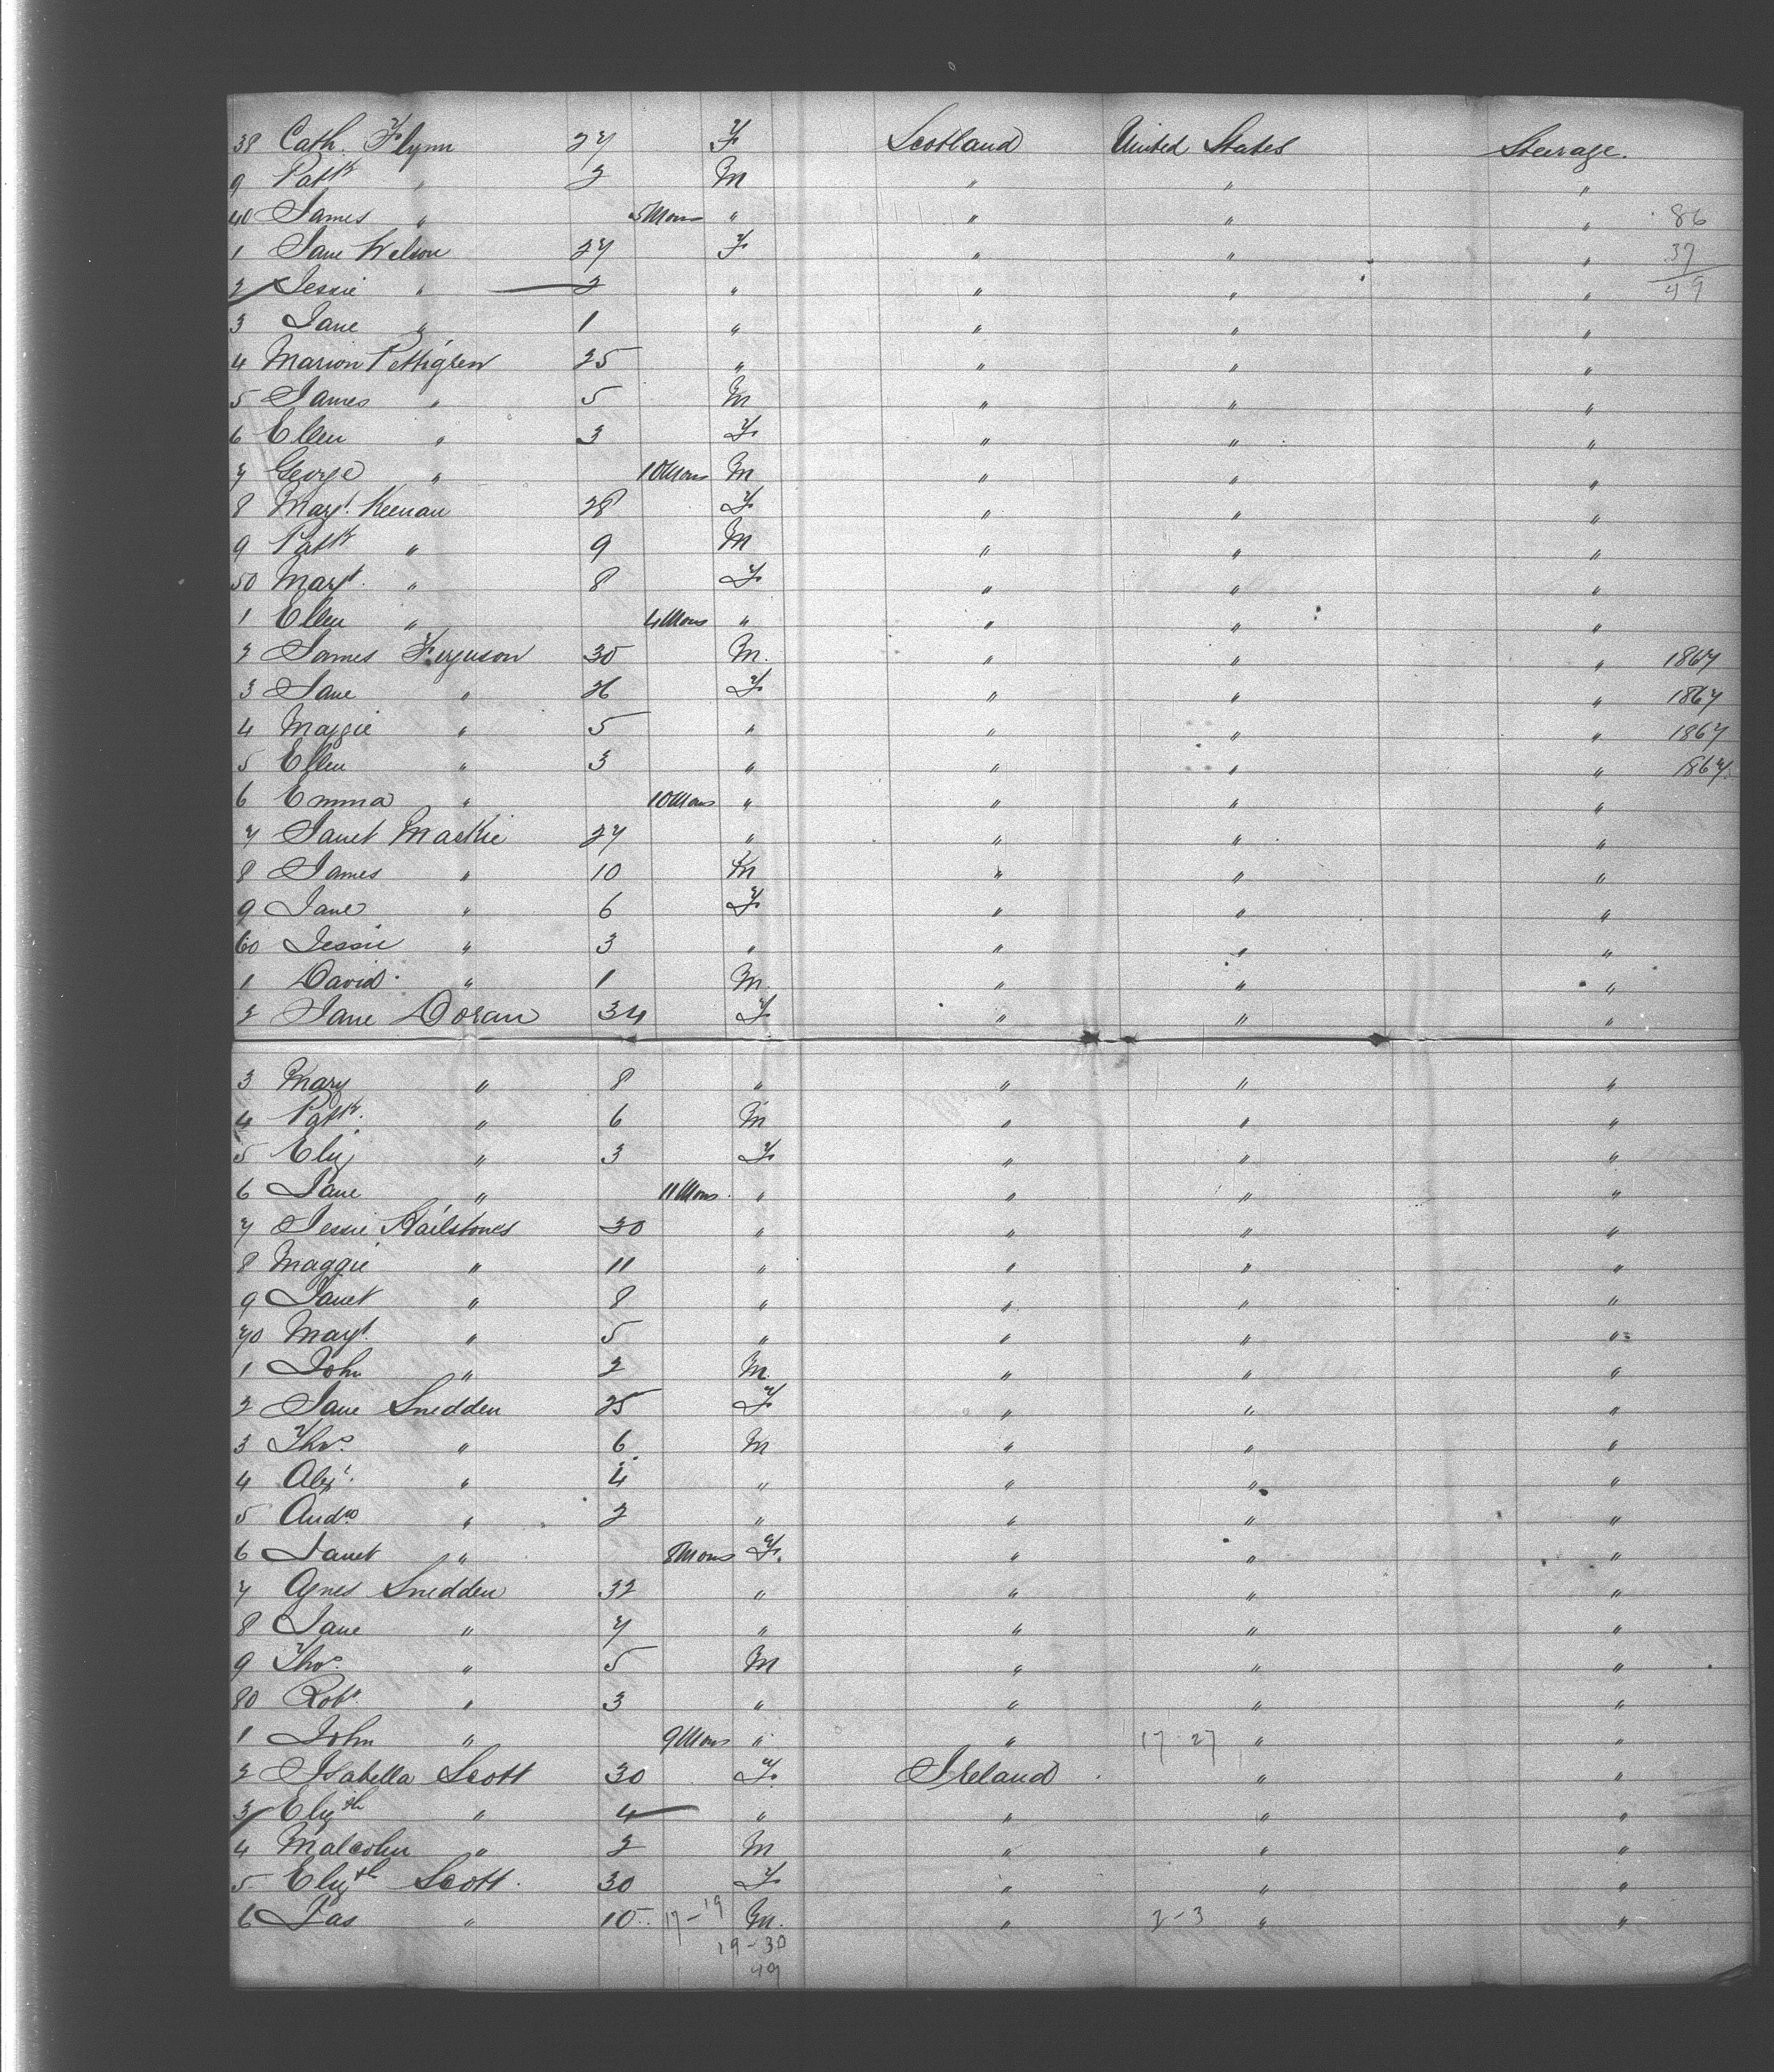 38 Cath. Flynn 27 F Scotland United States Steerage.
9 Patk " 2 M " " "
40 James " 5 Mons " " " " 86
1 Jane Wilson 27 F " " " 37
2 Jessie " 2 " " " " 49
3 Jane " 1 " " " "
4 Marion Pettigrew 25 " " " "
5 James " 5 M " " "
6 Ellen " 3 F " " "
7 George " 10 Mons M " " "
8 Margt. Keenan 28 F " " "
9 Patk " 9 M " " "
50 Margt. " 8 F " " "
1 Ellen " 4 Mons " " " "
2 James Ferguson 30 M. " " " 1867
3 Jane " 26 F " " " 1867
4 Maggie " 5 " " " " 1867
5 Ellen " 3 " " " " 1867.
6 Emma " 10 Mons " " " "
7 Janet Mackie 27 " " " "
8 James " 10 M " " "
9 Jane " 6 F " " "
60 Jessie " 3 " " " "
1 David " 1 M. " " "
2 Jane Doran 34 F " " "
3 Mary " 8 " " " "
4 Patk. " 6 M " " "
5 Eliz " 3 F " " "
6 Jane " 11 Mons. " " " "
7 Jessie Hailstones 30 " " " "
8 Maggie " 11 " " " "
9 Janet " 8 " " " "
70 Margt. " 5 " " " "
1 John " 2 M. " " "
2 Jane Snedden 25 F " " "
3 Thos. " 6 M " " "
4 Alexr. " 4 " " " "
5 Andw " 2 " " " "
6 Janet " 8 Mons F. " " "
7 Agnes Snedden 32 " " " "
8 Jane " 7 " " " "
9 Thos. " 5 M " " "
80 Robt. " 3 " " " "
1 John " 9 Mons " " 17-27 " "
2 Isabella Scott 30 F. Ireland " "
3 Elizth " 4 " " " "
4 Malcolm " 2 M " " "
5 Elizth Scott. 30 F " " "
6 Jas " 10 17-19 M. " 2-3 " "
19-30
49